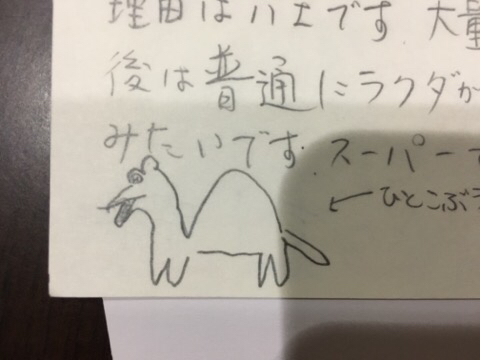 理由はハエです 大量
後は普通にラクダが
みたいです。スーパーで
←ひとこぶラ